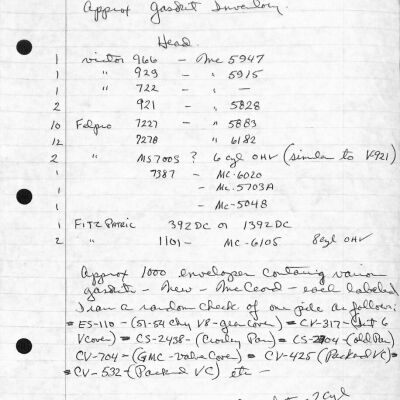 Approx Gasket Inventory.
Head.
1 victor 966 - Mc 5947
1 " 929 - " 5915
1 " 722 - " -
2 921 - " 5828
10 Felpro 7227 - " 5883
12 7278 " 6182
2 " MS700S ? 6 cyl OHV (similar to V921)
1 7387 - MC-6020
1 - MC-5703A
1 - Mc-5048
1 FITZ PATRIC 392DC or 1392DC
2 " 1101 - MC-6105 8cyl OHV
Approx 1000 envelopes containing various
gaskets - New - McCord - each labeled
I ran a random check of one pile as follows:
= ES-110 - (51-54 Chy V8-gear cover) = CV-317 - 6
Vcover) = CS-2438 - (Crosley Pan) = CS-2704 - (old Pan)
CV-704 - (GMC-valve Cover) = CV-425 (Packard VC) =
= CV-532 - (Packard VC) etc -
2 cyl